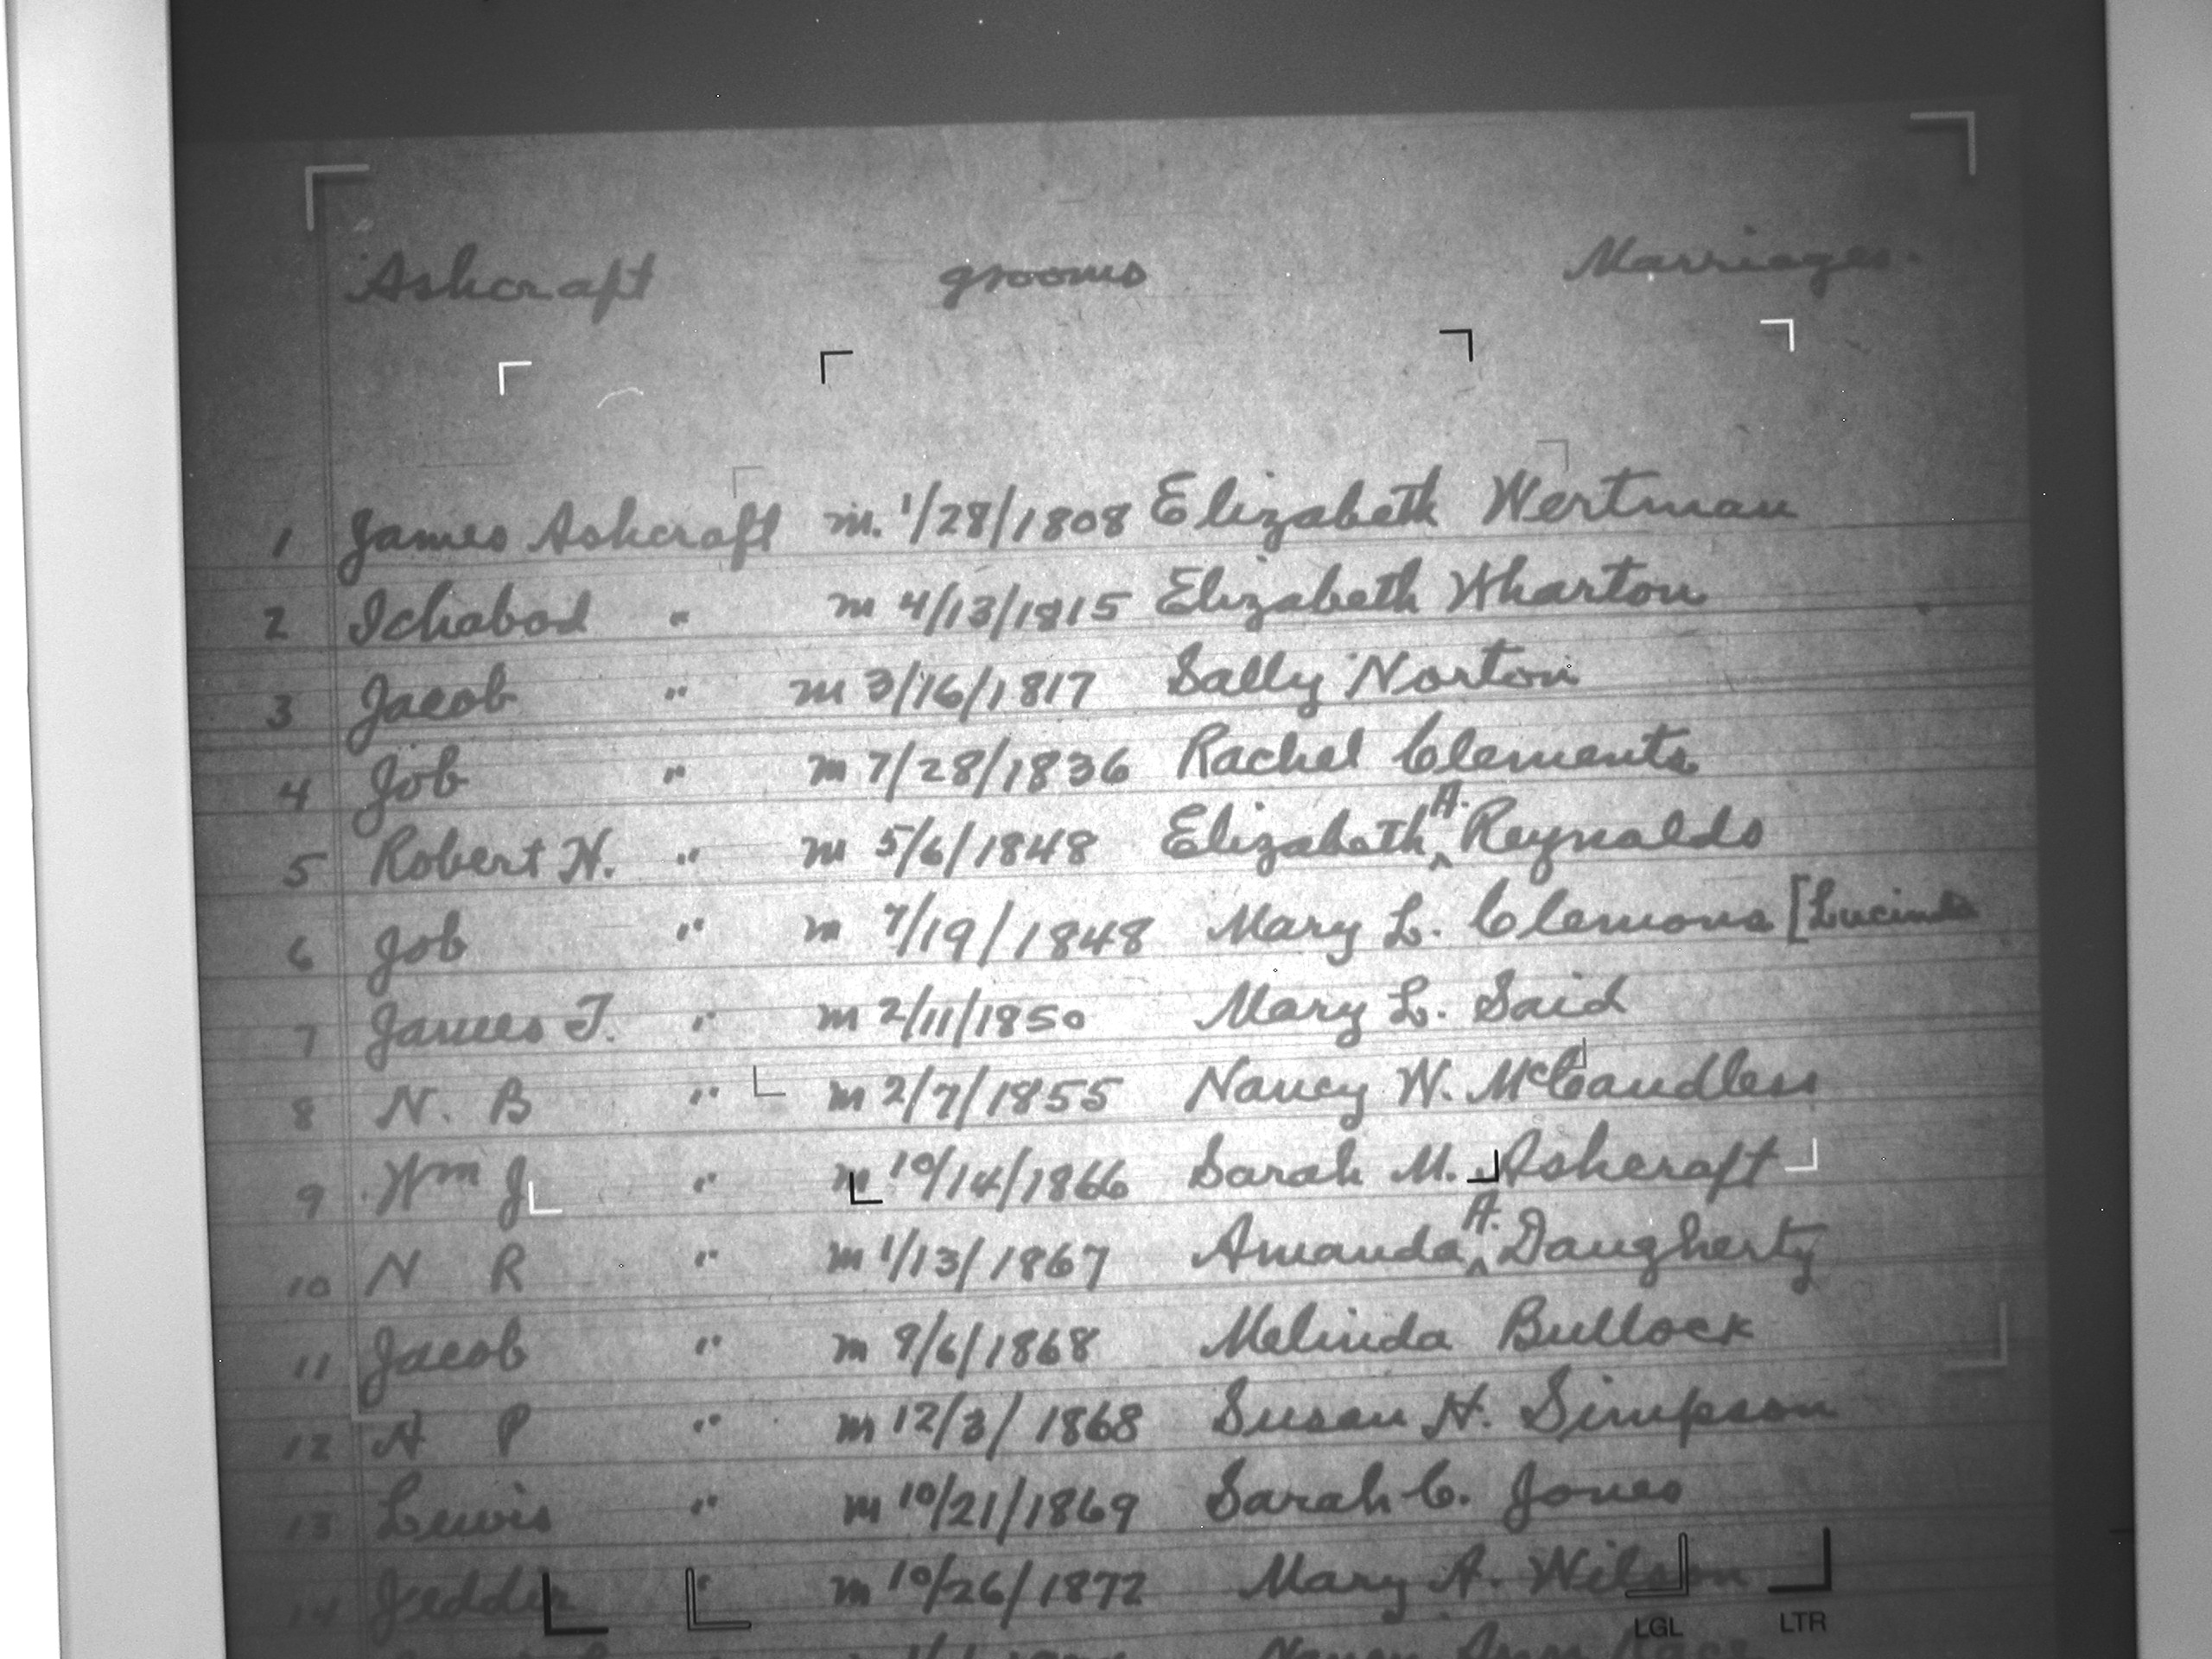 Ashcraft grooms Marriages.
1 James Ashcraft m. 1/28/1808 Elizabeth Wertman
2 Ichabod " m 4/13/1815 Elizabeth Wharton
3 Jacob " m 3/16/1817 Sally Norton
4 Job " m 7/28/1836 Rachel Clements
5 Robert H. " m 5/6/1848 Elizabeth ^A. Reynalds
6 Job " m 7/19/1848 Mary L. Clemons [Lucinda
7 James T. " m 2/11/1850 Mary L. Said
8 N. B " m 2/7/1855 Nancy W. McCandless
9 Wm J " m 10/14/1866 Sarah M. Ashcraft
10 N R " m 1/13/1867 Amanda ^A. Daugherty
11 Jacob " m 9/6/1868 Melinda Bullock
12 A P " m 12/3/1868 Susan H. Simpson
13 Lewis " m 10/21/1869 Sarah C. Jones
14 " m 10/26/1872 Mary A. Wilson
LGL LTR
Nancy Ann